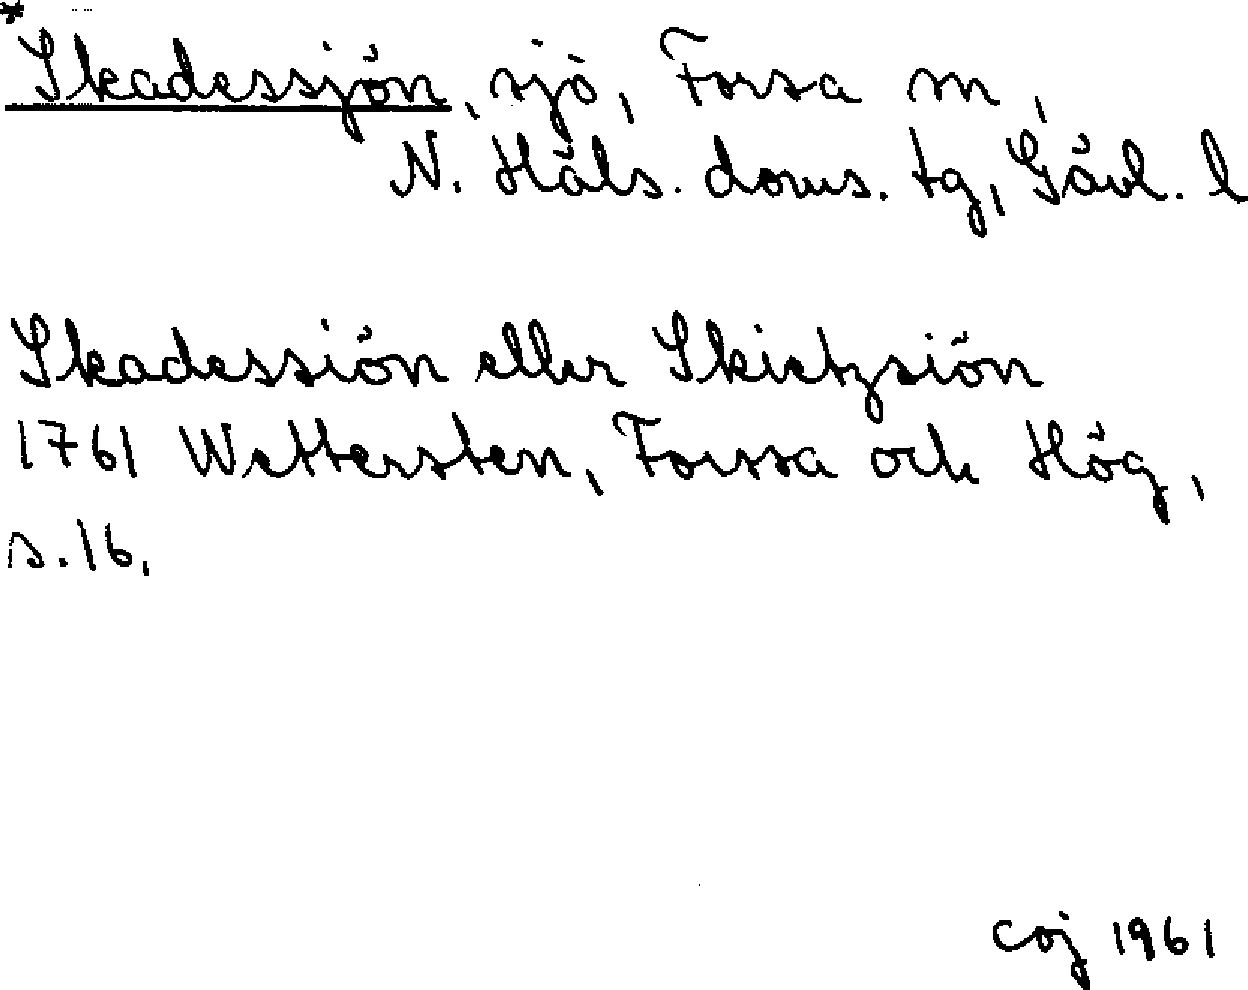 *Skadessjön, sjö, Forsa sn,
N. Häls. doms. tg, Gävl. l
Skadessiön eller Skietzsiön
1761 Wettersten, Forssa och Hög,
s. 16.
coj 1961